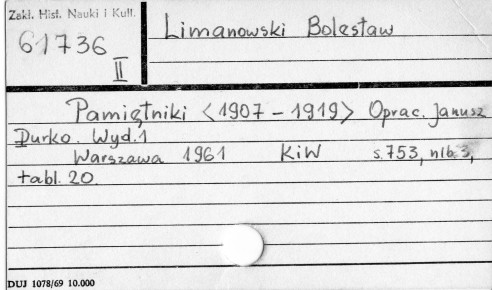 Zakł. Hist. Nauki i Kult.
61736
II
Limanowski Bolesław
Pamiętniki <1907 - 1919> Oprac. Janusz
Durko. Wyd. 1
Warszawa 1961 KiW s. 753, nlb. 3,
tabl. 20.
DUJ 1078/69 10.000